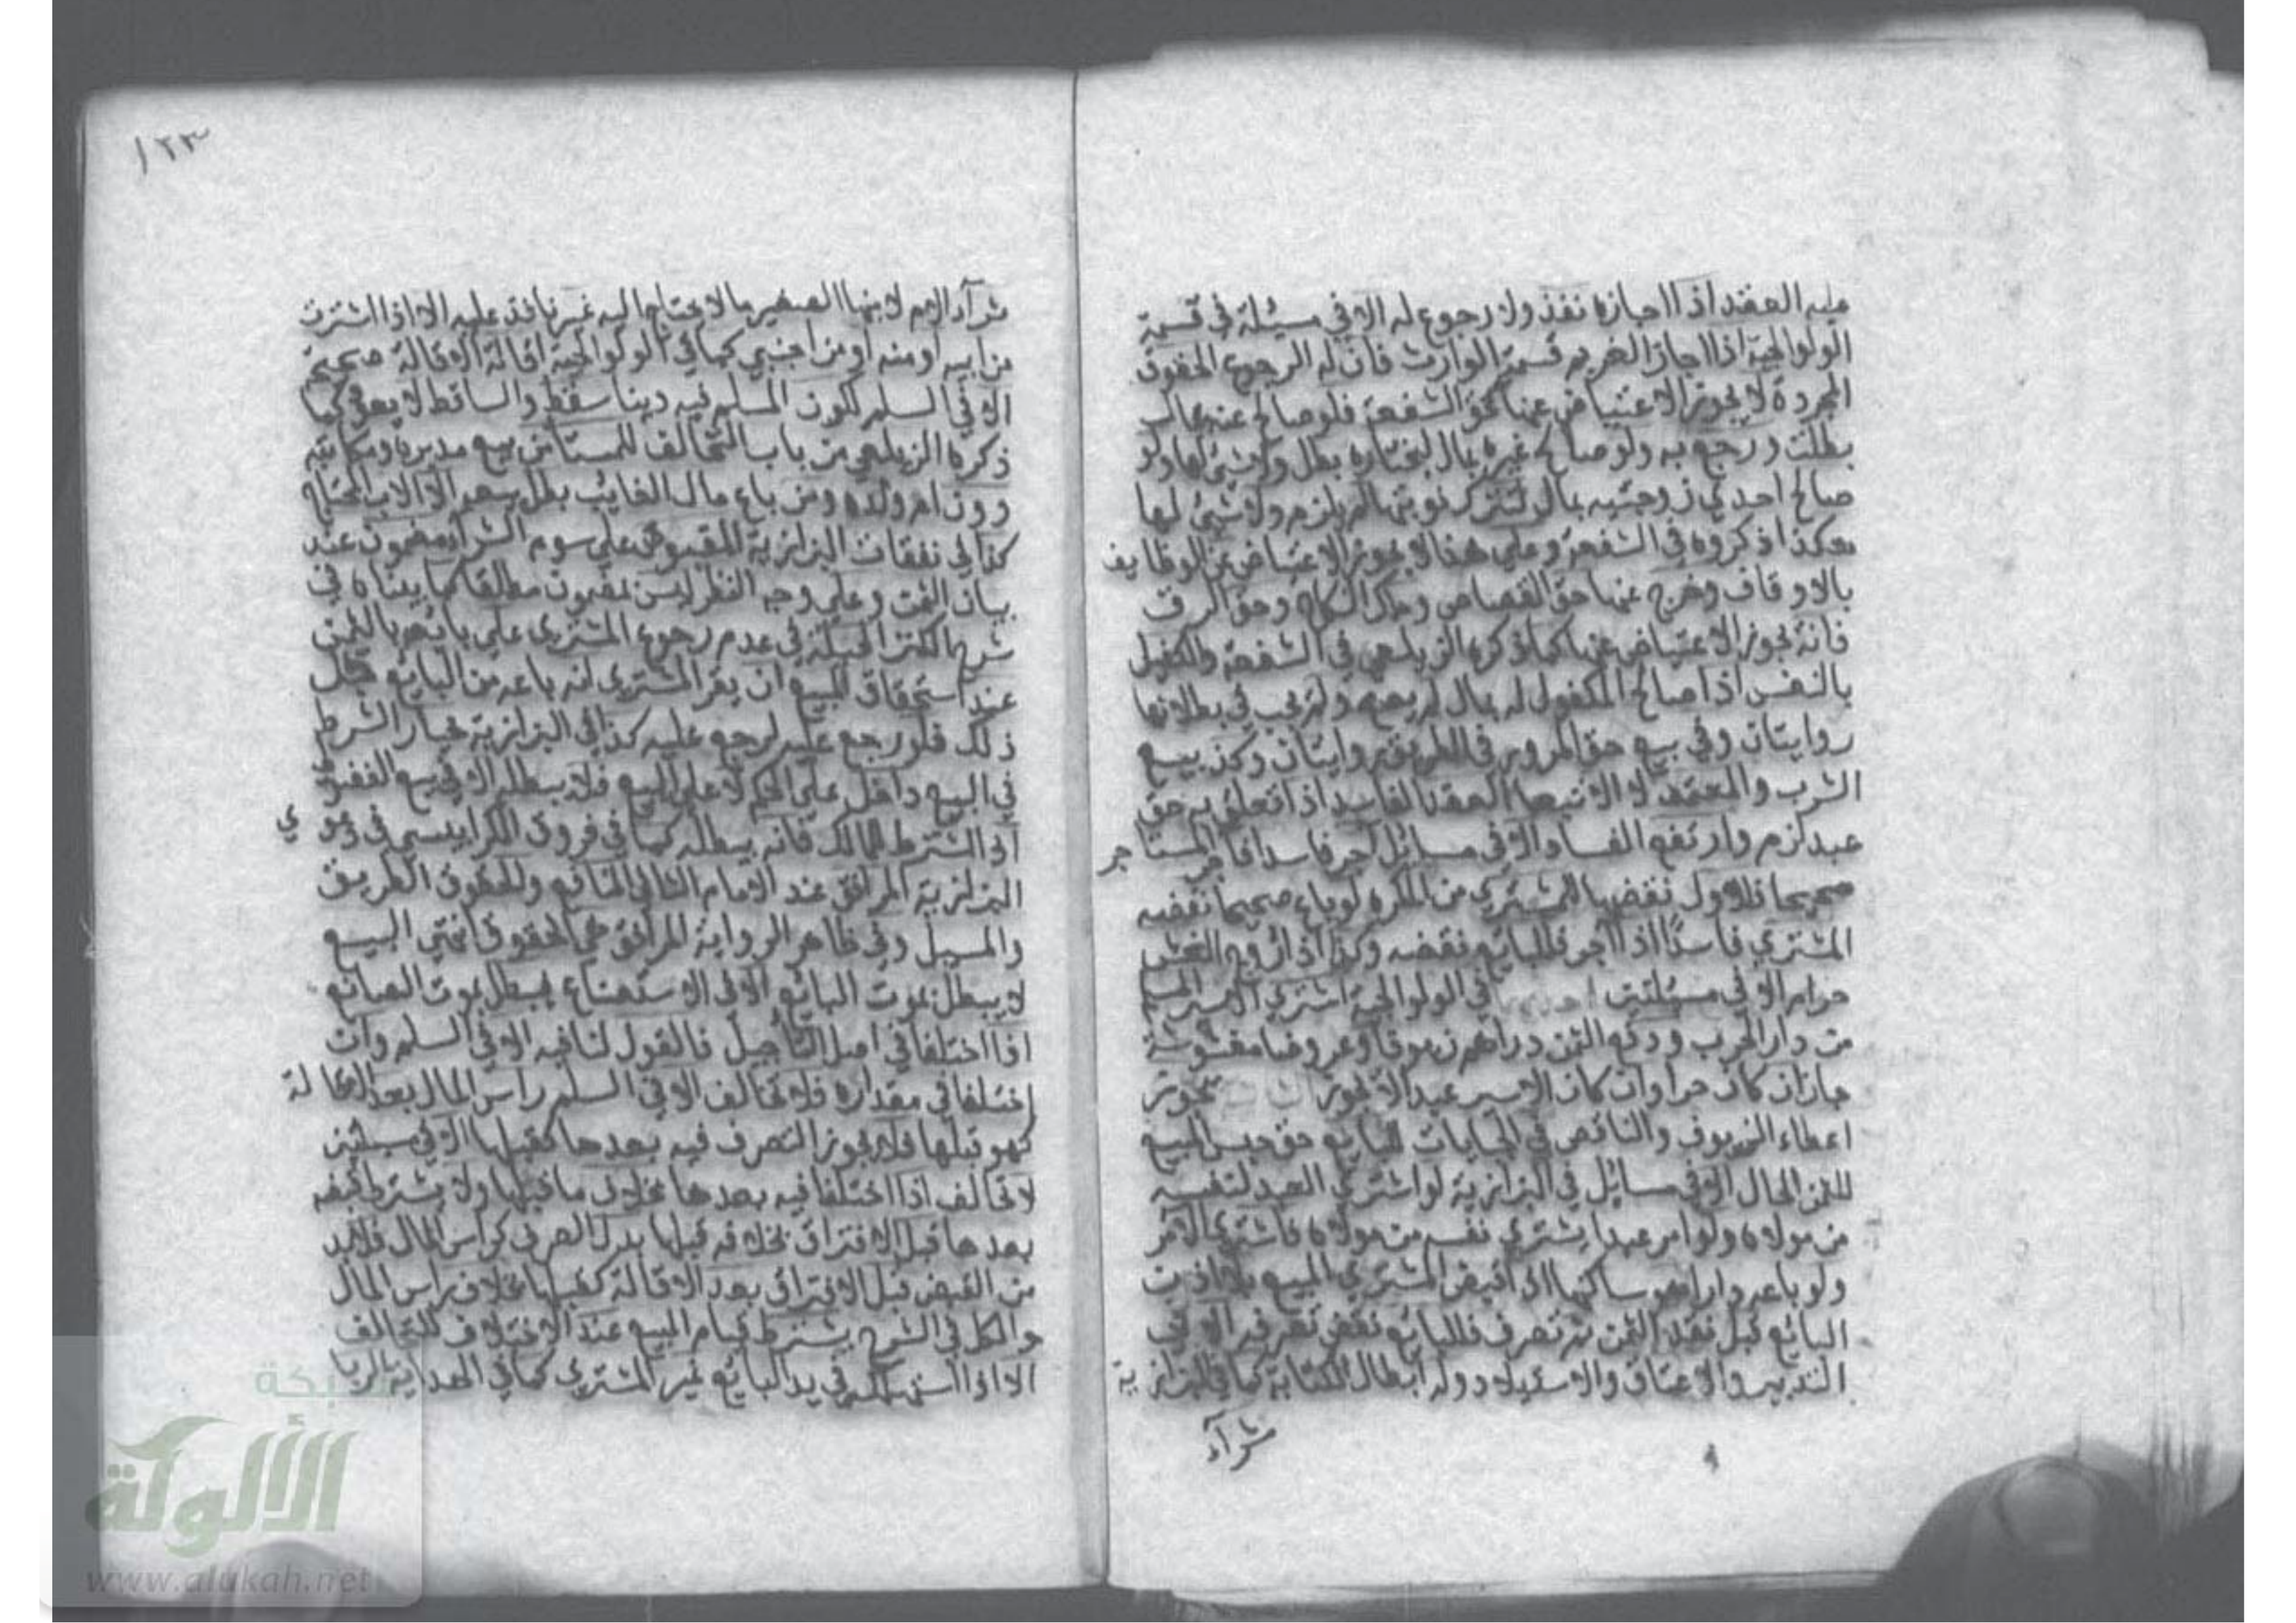 عليه العقد اذا اجازه نفذ ولا رجوع له الا في مسئلة في قسمة
الولوالجية اذا اجاز الغريم قسمة الوارث فان له الرجوع الحقوق
المجردة لا يجوز الاعتياض عنها كحق الشفعة فلو صالح عنه بمال
بطلت ورجع به ولو صالح غيره بمال لتختاره بطل ولا شيئ لها ولو
صالح احدي زوجتيه بمال لتترك نوبتها لم يلزم ولا شيئ لها
هكذا ذكروه في الشفعة وعلي هذا لا يجوز الاعتياض عن الوظايف
بالاوقاف وخرج عنها حق القصاص وملك النكاح وحق الرق
فانه يجوز الاعتياض عنها كما ذكره الزيلعي في الشفعة والكفيل
بالنفس اذا صالح المكفول له بمال لم يصح ولم يجب في بطلانها
روايتان وفي بيع حق المرور في الطريق روايتان وكذ بيع
الشرب والمعتمد لا الا تبعا العقد الفاسد اذا تعلق به حق
عبد لزم وارتفع الفساد الا في مسايل آجر فاسدا فاجر المستاجر
صحيحا فللاول نقضها المشتري من المكره لو باع صحيحا نقضه
المشتري فاسدًا اذا آجر فللبايع نقضه وكذا اذا زوج الغش
حرام الا في مسئلتين في الولوالجية اشتري الاسير المسلم
من دار الحرب ودفع الثمن دراهم زيوفا وعروضا مغشوشة
جاز ان كان حرا وان كان الاسير عبدا لا يجوز يجوز
اعطاء الزيوف والناقص في الجبايات للبايع حق حبس المبيع
للثمن الحال الا في مسايل في البزازية لو اشتري العبد لنفسه
من مولاه ولو امر عبدا يشتري نفسه من مولاه فاشتري الامر
ولو باعه دارا هو ساكنها اذا قبض المشتري المبيع بلا اذن
البائع قبل نقد الثمن ثم تصرف فللبايع نقض تصرفه الا في
التدبير والاعتاق والاستيلاد وله ابطال الكتابة كما في البزازية
شرآء
١٢٣
شرآء الام لابنها الصغير ما لا يحتاج اليه غير نافذ عليه الا اذا اشترت
من ابيه او منه او من اجنبي كما في الولوالجية اقالة الاقالة صحيحة
الا في السلم لكون المسلم فيه دينا سقط والساقط لا يعود كما
ذكره الزيلعي من باب التحالف للمستامن بيع مدبره ومكاتبه
دون ام ولده ومن باع مال الغايب بطل بيعه الا الاب المحتاج
كذا في نفقات البزازية المقبوض علي سوم الشراء مضمون عند
بيان الثمن وعلي وجه النظر ليس بمضمون مطلقا كما بيناه في
شرح الكنز الحيلة في عدم رجوع المشتري علي بايعه بالثمن
عند استحقاق المبيع ان يقر المشتري انه باعه من البايع قبل
ذلك فلو رجع عليه لرجع عليه كذا في البزازية خيار الشرط
في البيع داخل علي الحكم لا علي البيع فلا يبطله الا في بيع الفضولي
اذا اشترط للمالك فانه يبطله كما في فروق الكرابيسي في دعوي
البزازية المرافق عند الامام الثاني المنافع وللحقوق الطريق
والمسيل وفي ظاهر الرواية المرافق هي الحقوق انتهي البيع
لا يبطل بموت البائع الا في الاستصناع يبطل بموت الصانع
اذا اختلفا في اصل التاجيل فالقول لنافيه الا في السلم وان
اختلفا في مقداره فلا تحالف الا في السلم راس المال بعد الاقالة
كهو قبلها فلا يجوز التصرف فيه بعدها كقبلها الا في مسئلتين
لا تحالف اذا اختلفا فيه بعدها بخلاف ما قبلها ولا يشترط قبضه
بعدها قبل الافتراق بخلافه قبلها بدل الصرف كراس المال فلا بد
من القبض قبل الافتراق بعد الاقالة كقبلها بخلاف راس المال
والكل في الشرح يشترط قيام المبيع عند الاختلاف للتحالف
الا اذا استهلكه في يد البائع غير المشتري كما في الهداية الربا
شبكة
الألوكة
www.alukah.net